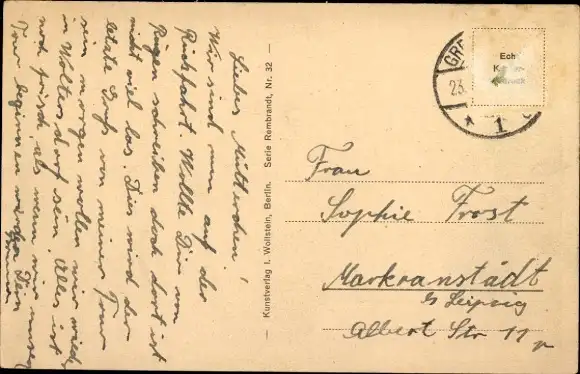 Liebes Mütterchen!
Wir sind nun auf der
Rückfahrt. Wollte Dir von
Rügen schreiben doch dort ist
nicht viel los. Dies wird der
letzte Gruß von meiner Tour
sein morgen wollen wir wieder
in Woltersdorf sein. Alles ist
noch frisch als wenn wir unsere
Tour beginnen würden. Dein
— Kunstverlag I. Wollstein, Berlin. Serie Rembrandt, Nr. 32 —
GR
23.
1
Ech
Frau
Sophie Frost
Markranstädt
b/ Leipzig
Albert Str 11